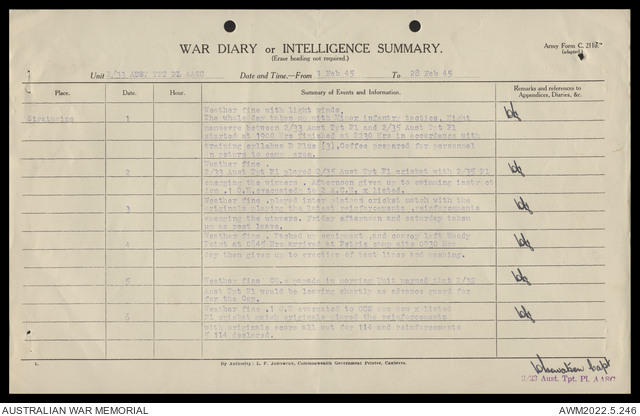 WAR DIARY or INTELLIGENCE SUMMARY.
(Erase heading not required.)
Army Form C. 2118."
(adapted)
Unit 2/33 AUST TPT PL AASC Date and Time.—From 1 Feb 45 To 28 Feb 45
Place. Date. Hour. Summary of Events and Information. Remarks and references to Appendices, Diaries, &c.
Strathpine 1 Weather fine with light winds.
The whole day taken up with Minor infantry tactics. Night
manuevre between 2/33 Aust Tpt Pl and 2/35 Aust Tpt Pl
started at 1900 Hrs finished at 2230 Hrs in accordance with
training syllabus D Plus (3). Coffee prepared for personnel
on return to camp area.
Weather fine .
2 2/33 Aust Tpt Pl played 2/35 Aust Tpt Pl cricket with 2/35 Pl
emerging the winners . Afternoon given up to swimming instruct
ion .1 O.R. evacuated to 2 A.C.H. x listed.
Weather fine , played inter platoon cricket match with the
3 originals playing the latest reinforcements ,
emerging the winners. Friday afternoon and saturday taken
up as rest leave.
Weather fine . Packed up equipment ,and convoy left Woody
4 Point at 0845 Hrs arrived at Petrie camp site 0930 Hrs
day then given up to erection of tent lines and messing.
5 Weather fine parade in morning Unit warned that 2/33
Aust Tpt Pl would be leaving shortly as advance guard for
for the Coy.
Weather fine .1 O.R evacuated to CCS now x listed
6 Pl cricket match originals played the reinforcements
with originals score all out for 114 and reinforcements
5 114 declared.
1. By Authority: L. F. Johnston, Commonwealth Government Printer, Canberra.
Capt
2/33 Aust. Tpt. Pl. AASC
AUSTRALIAN WAR MEMORIAL
AWM2022.5.246